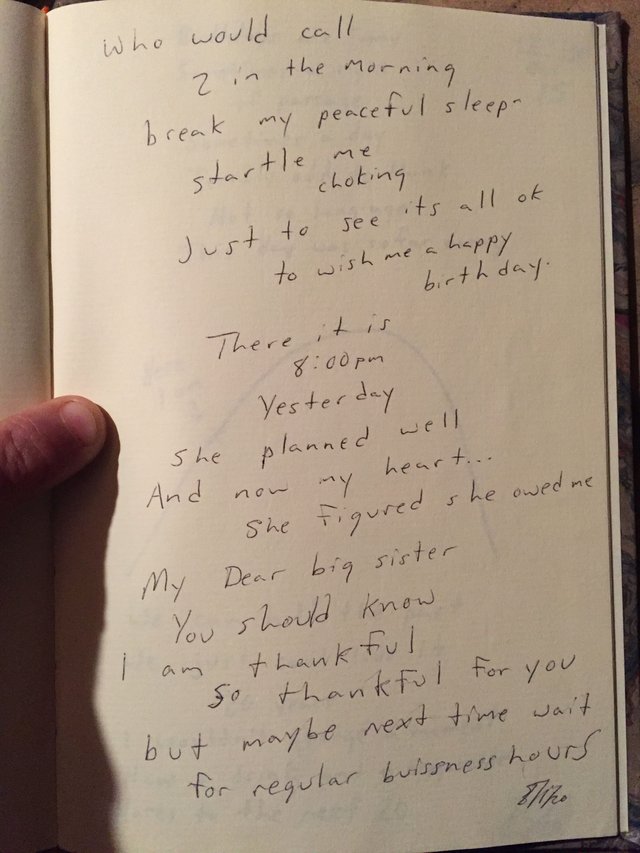 who would call
2 in the morning
break my peaceful sleep-
startle me
choking
Just to see its all ok
to wish me a happy
birthday.
There it is
8:00pm
Yesterday
She planned well
And now my heart...
She figured she owed me
My Dear big sister
You should know
i am thankful
so thankful for you
but maybe next time wait
for regular buissness hours
8/1/20